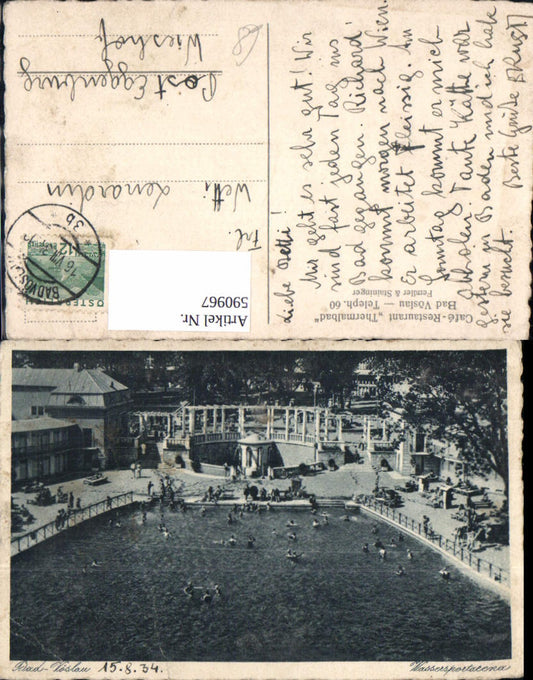 Liebe Netti!
Mir geht es sehr gut! Wir
sind fast jeden Tag ins
Bad gegangen. Richard
kommt morgen nach Wien.
Er arbeitet fleissig. Am
Sonntag kommt er mich
abholen. Tante Käthe war
gestern in Baden und ich habe
sie besucht.
Beste Grüße
Café-Restaurant „Thermalbad"
Bad Vöslau — Teleph. 60
Fendler & Staininger
Frl.
Wetti Lenardin
Post Eggenburg
Wieshof
BAD VÖSLAU
3b
Artikel Nr.
590967
Bad-Vöslau 15.8.34.
Wassersportarena